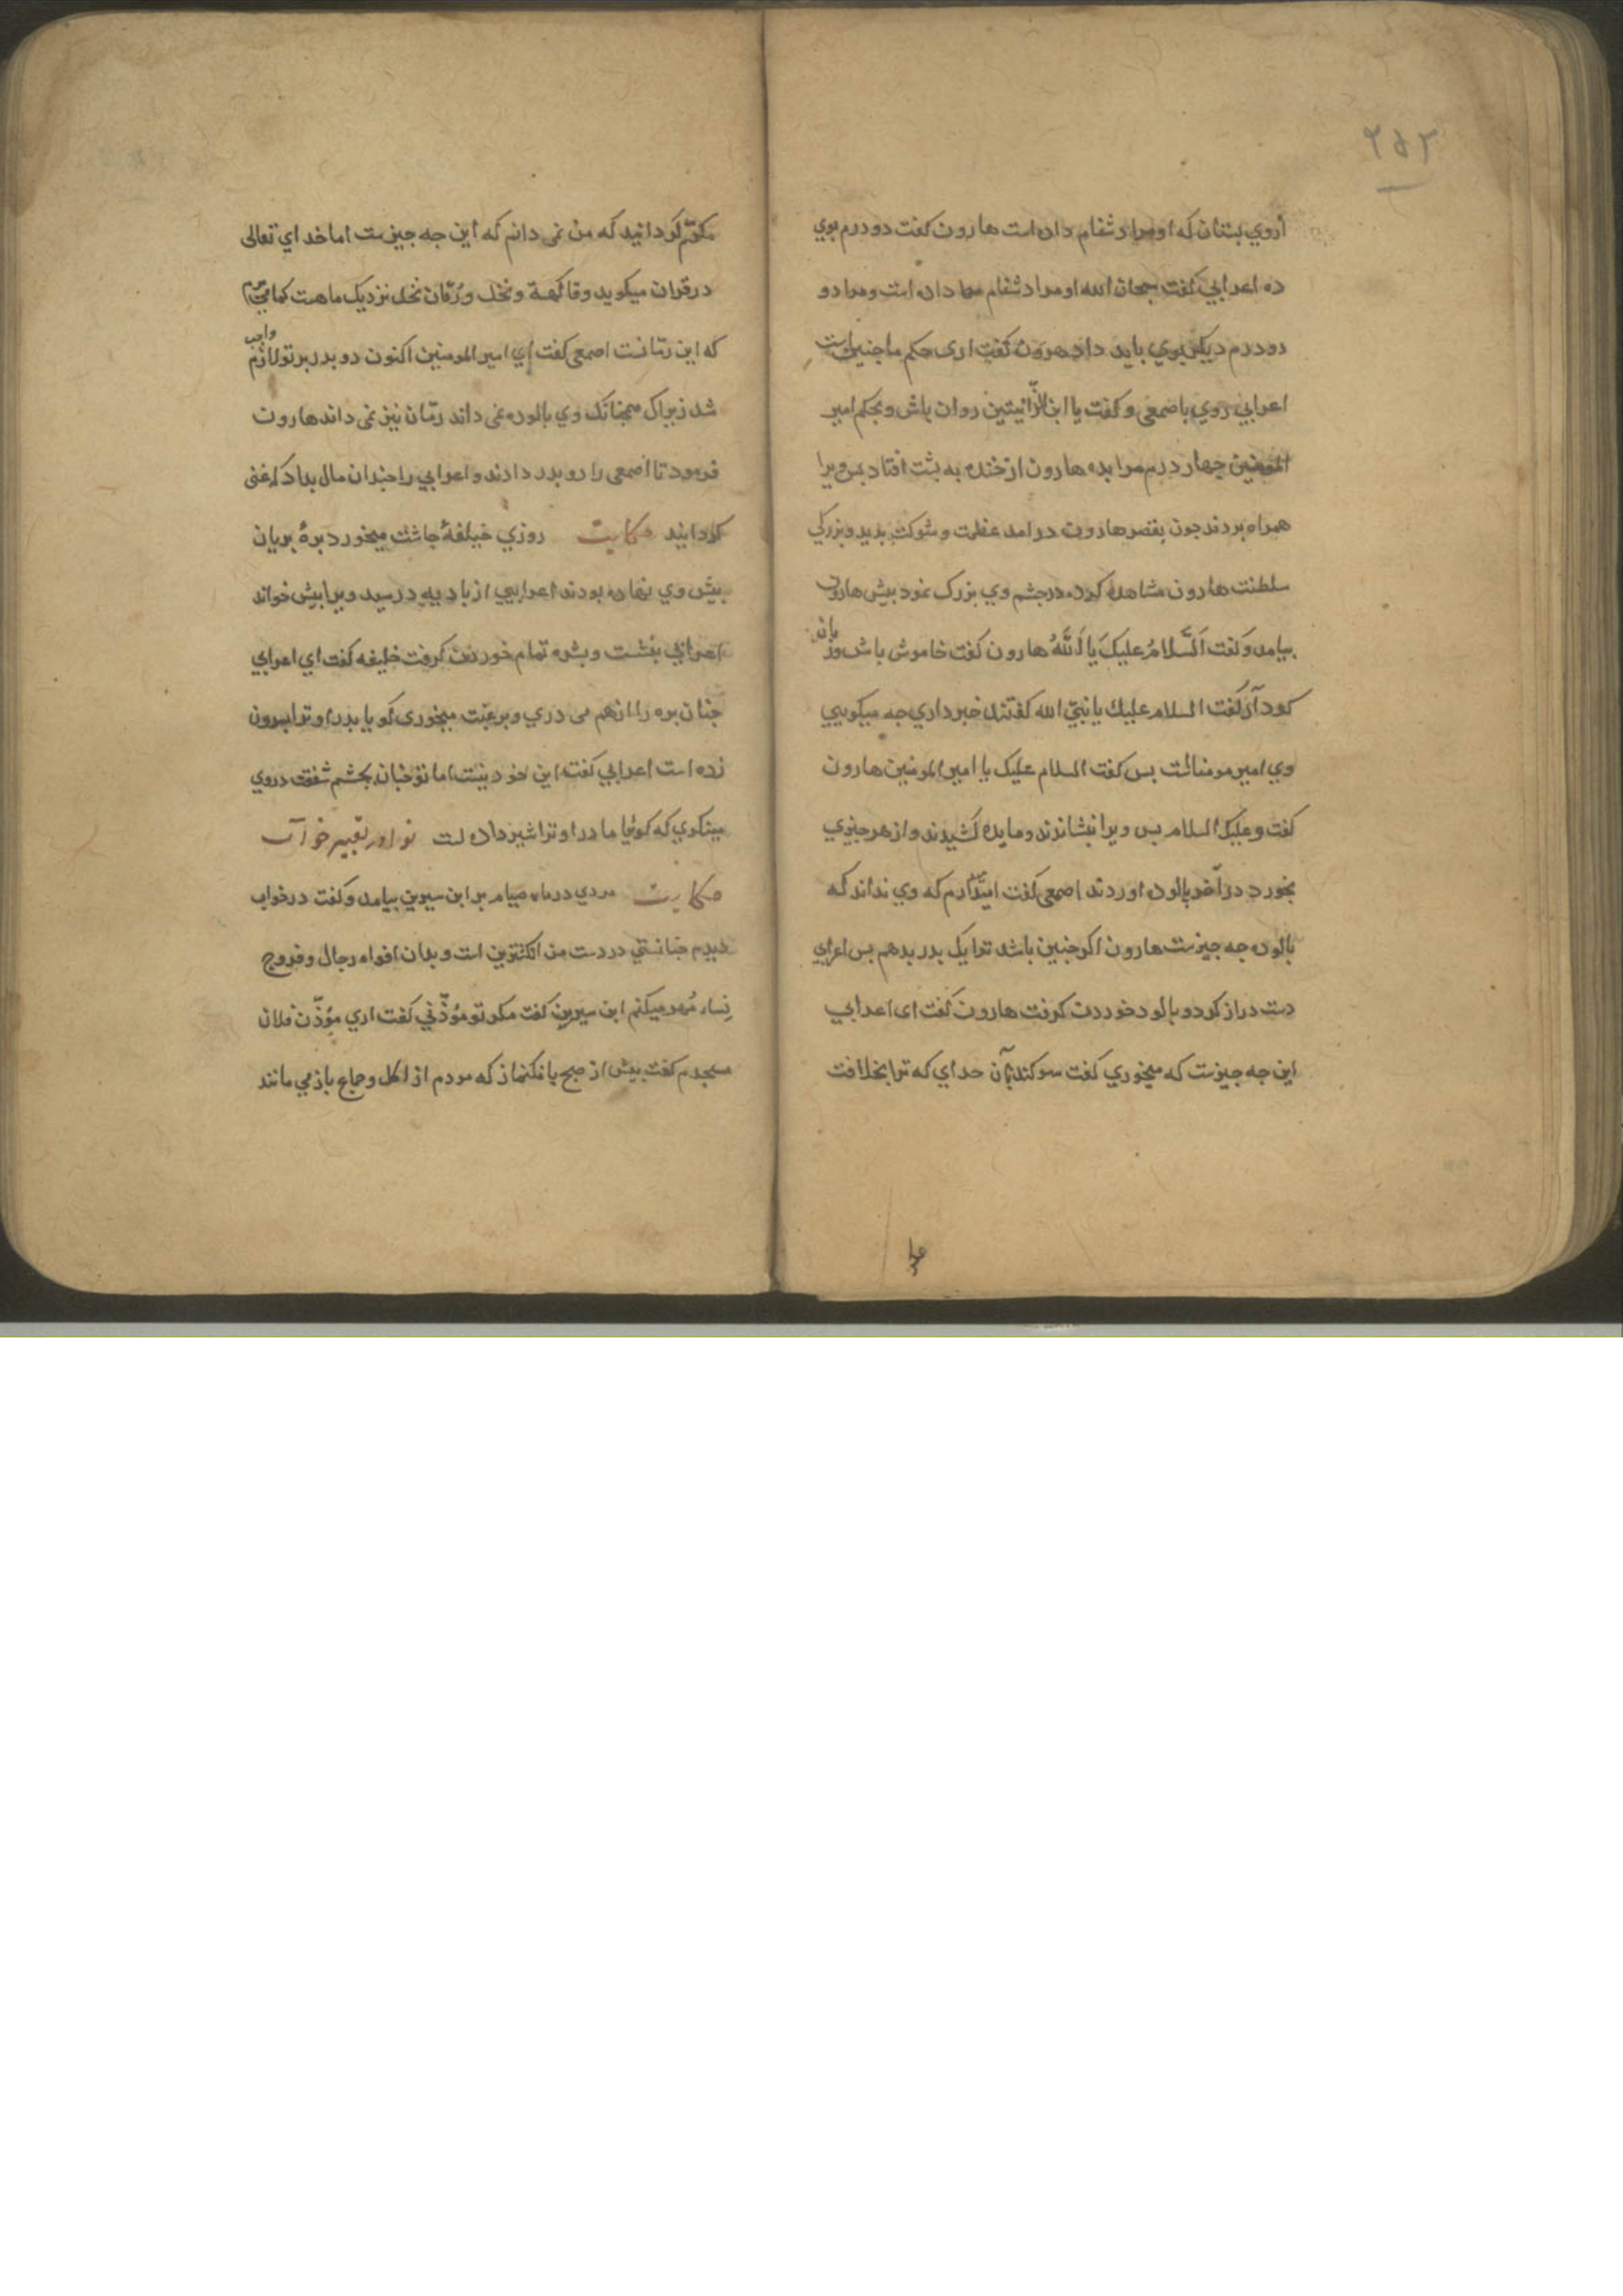 ۲۵۲
ازوی بستان که او مرا دشنام داده است هارون کفت دو درم بوی
ده اعرابی کفت سبحان الله او مرا دشنام داده است و مرا دو
دو درم دیکر بوی باید داد هرون کفت اری حکم ما جنین است
اعرابی روی باصمعی و کفت یا ابن الزّانیتین روان باش و بحکم امیر
المومنین جهار درم مرا بده هارون از خنده به بشت افتاد بس ویرا
همراه بردند جون بقصر هارون در امد عظمت و شوکت بدید و بزرکی
سلطنت هارون مشاهدهٔ کرد در جشم وی بزرک نمود بیش هارون
بیامد و کفت اَلسَّلامُ علیکَ یا اَللّهُ هارون کفت خاموش باش و زبان
کرد آر کفت السلام علیك یا نبیّ الله کفتند خبر داری جه میکویی
وی امیر مومنانست بس کفت السلام علیک یا امیر المومنین هارون
کفت و علیک السلام بس ویرا بنشاندند و مایده کشیدند و از هر جیزی
بخورد در آخر بالوده اوردند اصمعی کفت امیدوارم که وی نداند که
بالوده جه جیزست هارون اکر جنین باشد ترا یک بدر بدهم بس اعرابی
دست دراز کرد و بالود خوردن کرفت هارون کفت ای اعرابی
این جه جیزست که میخوری کفت سوکند بآن خدای که ترا بخلافت
مکرّم کردانید که من نمی دانم که این جه جیزست اما خدای تعالی
در قران میکوید و فاکهة و نخل و رُمّان نخل نزدیک ما هست
که این رمّانست اصمعی کفت ای امیر المومنین اکنون دو بدر بر تو لازم واجب
شد زیراک همجنانک وی بالوده نمی داند رمّان نیز نمی داند هارون
فرمود تا اصمعی را دو بدر دادند و اعرابی را جندان مال بداد که غنی
کردانید حکایت روزی خیلفهٔ جاشت میخورد برهٔ بریان
بیش وی نهاده بودند اعرابیی از بادیه در رسید ویرا بیش خواند
اعرابی بنشست و بشره تمام خوردن کرفت خلیفه کفت ای اعرابی
جنان بره را از هم می دری و برغبت میخوری کویا بدر او ترا بسرون
زده است اعرابی کفت این خود نیست اما تو جنان بجشم شفقت در وی
مینکری که کوئیا مادر او ترا شیر داده است نوادر تعبیر خواب
حکایت مردی در ماه صیام بر ابن سیرین بیامد و کفت در خواب
دیدم جنانستی در دست من انکشترین است و بدان افواه رجال و فروج
نِساء مُهر میکنم ابن سیرین کفت مکر تو مُوذّنی کفت اری موُذّن فلان
مسجدم کفت بیش از صبح بانک نماز که مردم از اکل و جماع باز می مانند